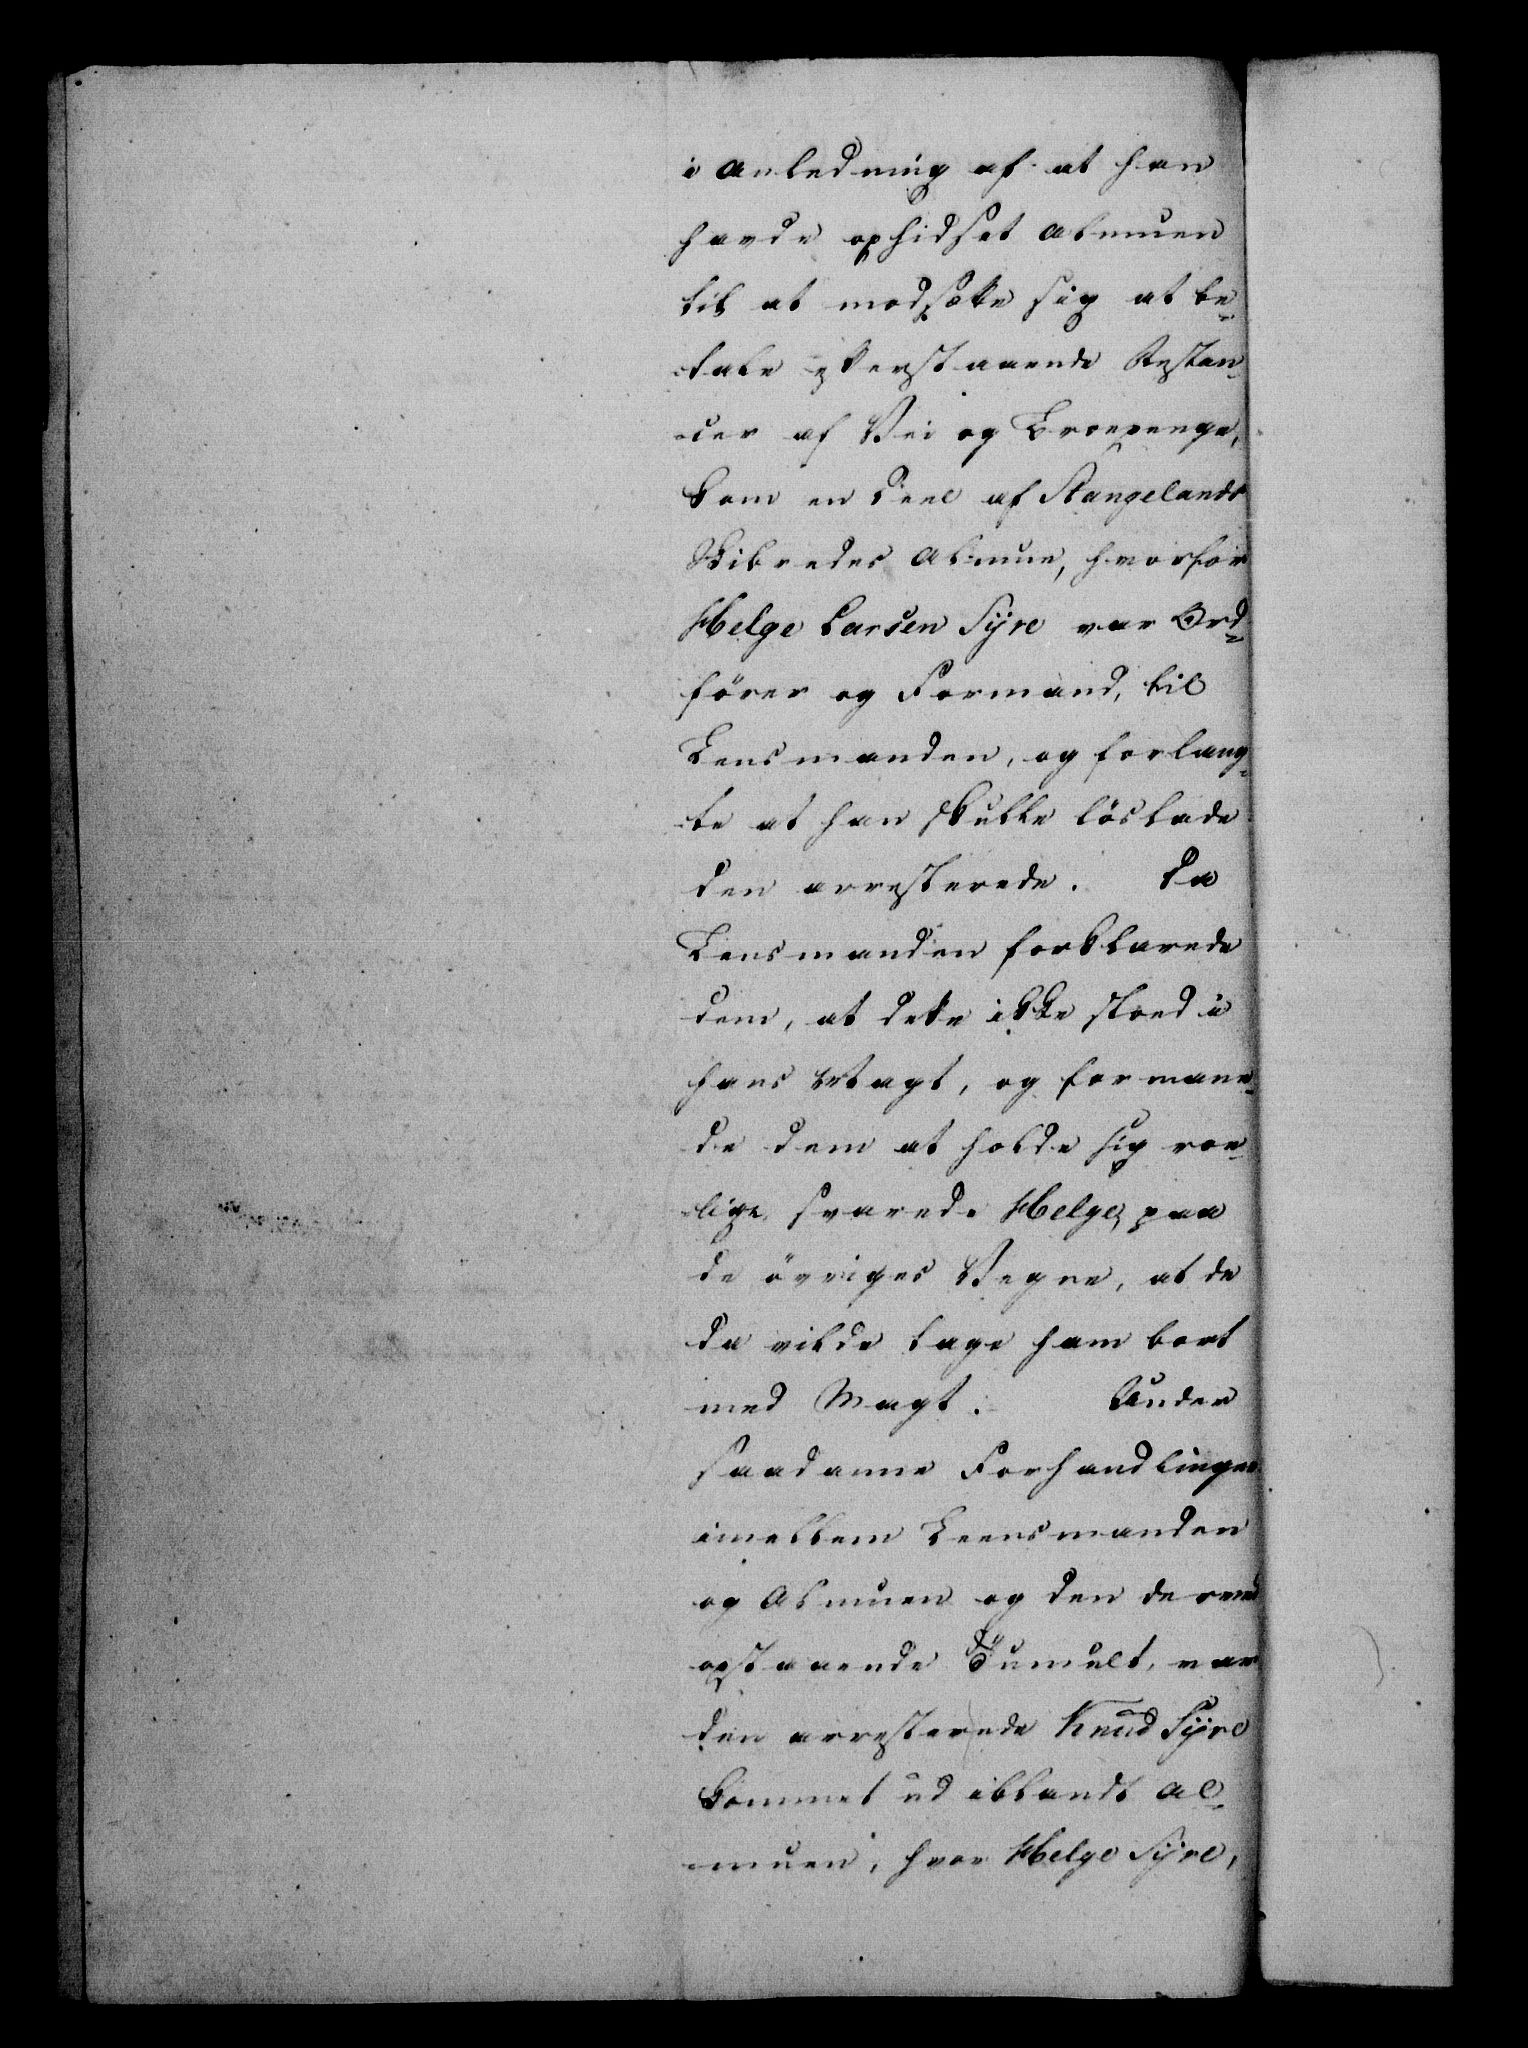 i Anledning af at han
havde ophidset Almuen
til at modsætte sig at be-
tale efterstaaende Restan-
cer af Vei og Broepenge,
kom en Deel af Stangelands
Skibredes Almue, hvorfor
Helge Larsen Syre var Ord-
fører og Formand, til
Lensmanden, og forlang-
te at han skulle löslade
den arresterede. Da
Lensmanden forklarede
dem, at dette ikke stoed i
hans Magt, og formane-
de dem at holde sig roe-
lige, svarede Helge, paa
de övriges Vegne, at de
da vilde tage ham bort
med Magt. Under
saadanne Forhandlinger
imellem Leensmanden
og Almuen og den derved
opstaaende Tumult, var
den arresterede Knud Syre
kommet ud iblandt Al-
muen, hvor Helge Syre,